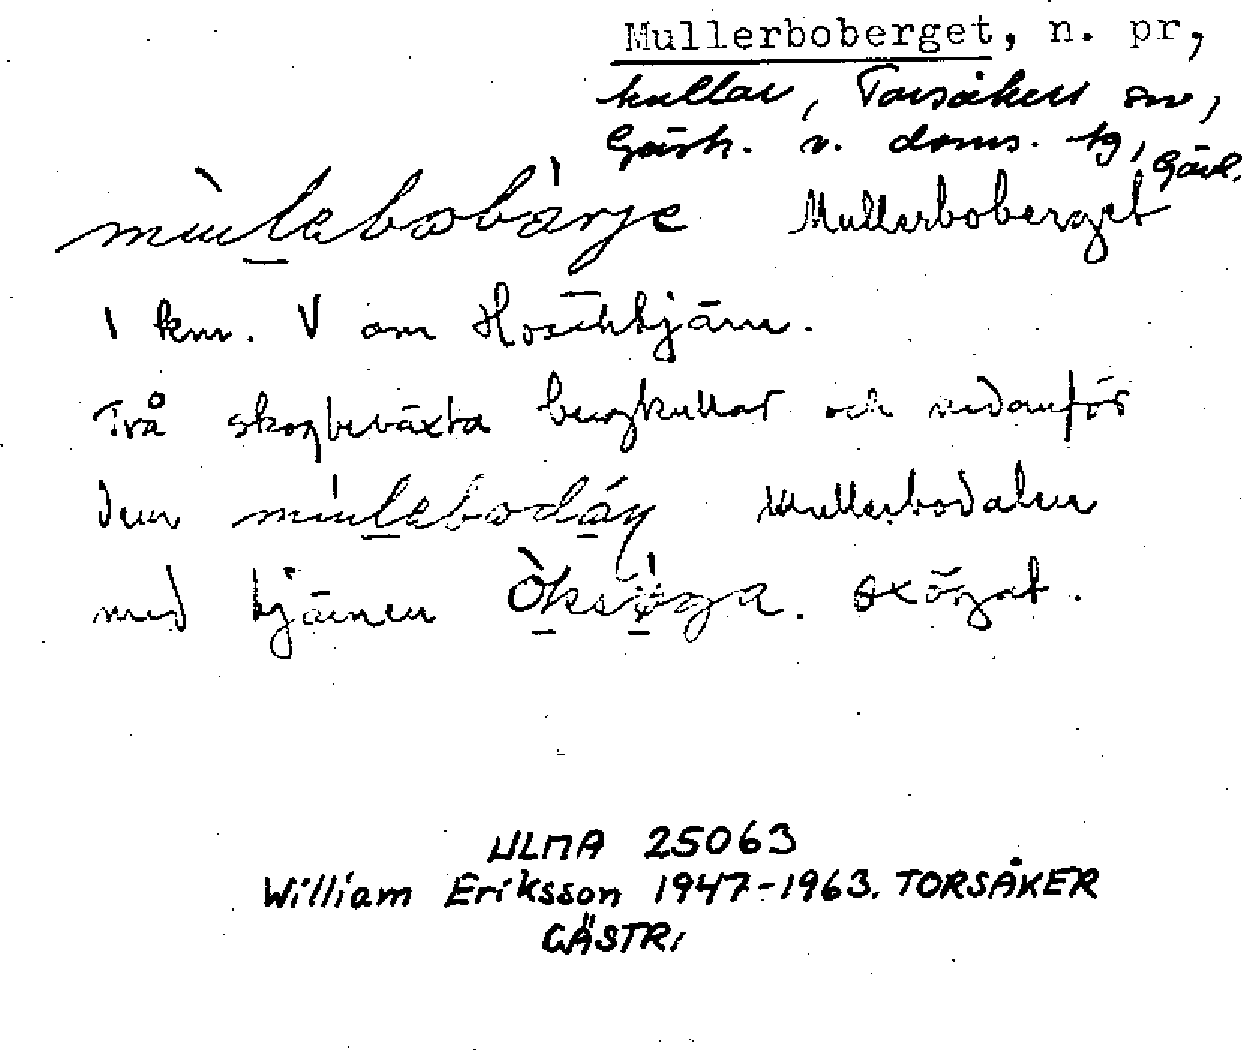 Mullerboberget, n. pr,
kullar, Torsåkers sn,
Gästr. v. doms. tg, Gävl.
Mullerboberget
1 km. V om
Två skogbeväxta bergkullar och nedanför
den Mullerbodalen
med tjärnen Oxögat.
ULMA 25063
William Eriksson 1947-1963. TORSÅKER
GÄSTR,